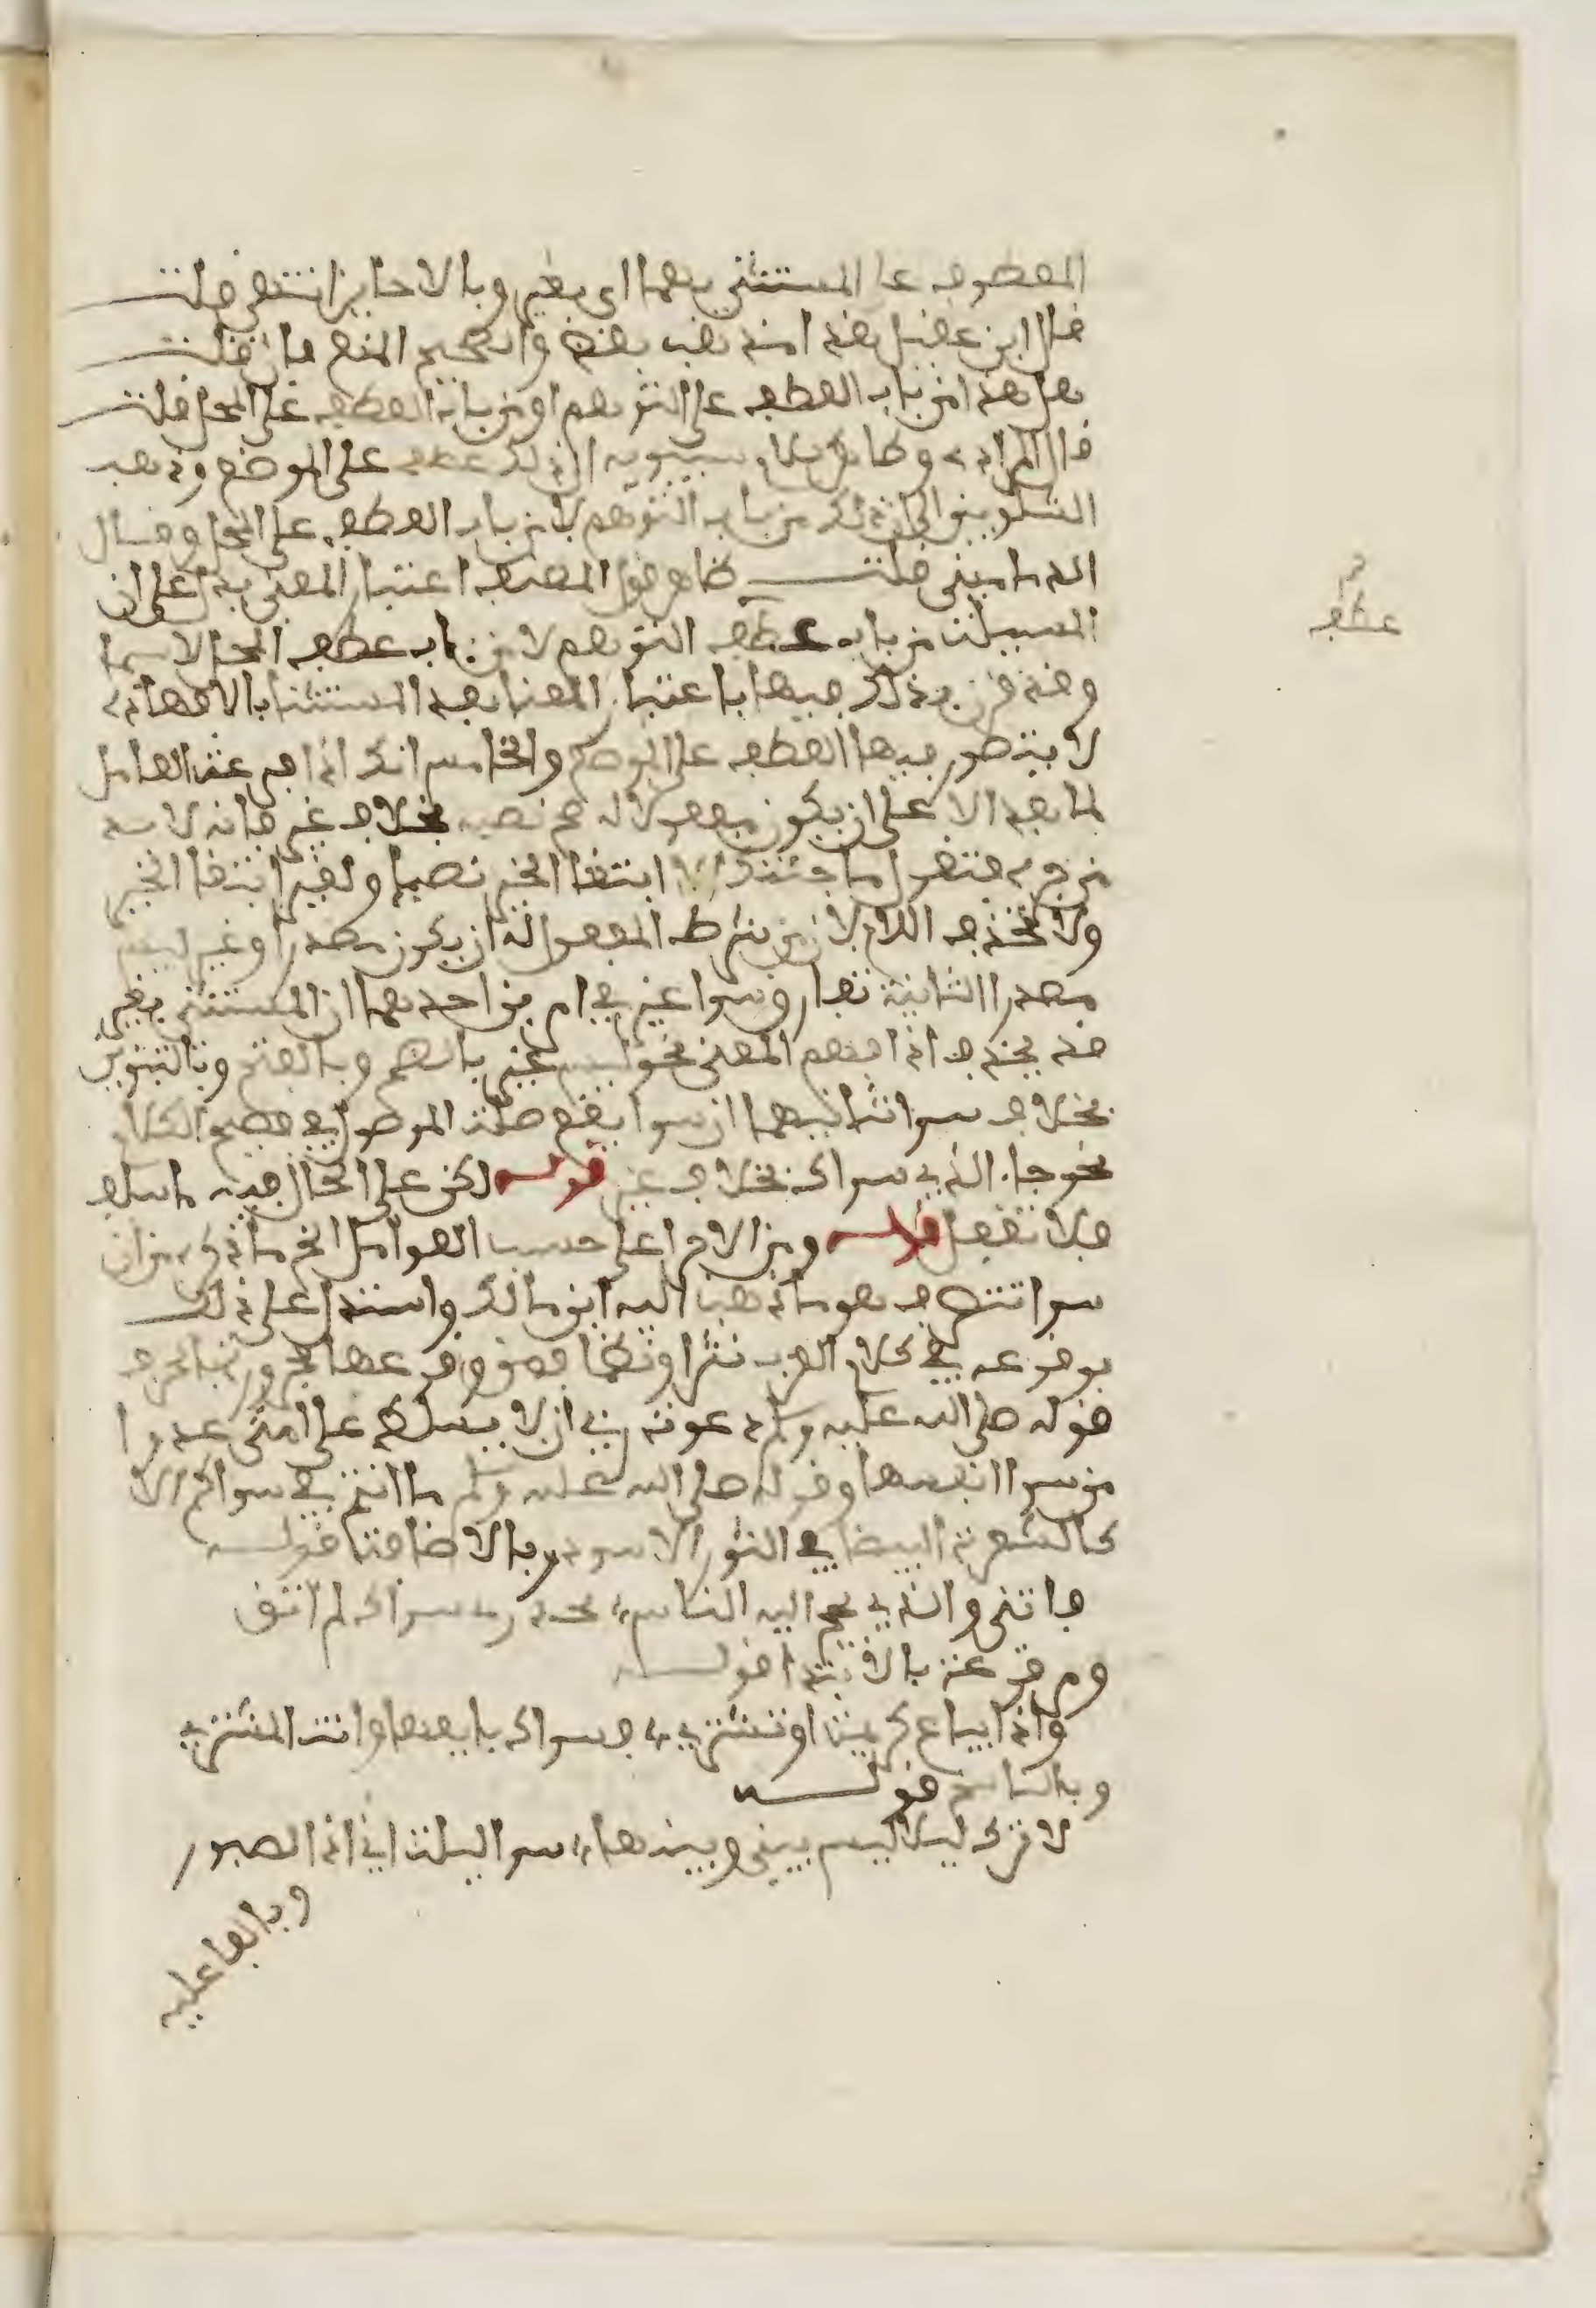 المعطوف على المستثنى بهما اي بغير وبالا جايز انتهى قلت
قال ابن عقيل هذا مذهب بعض والصحيح المنع فان قلت
هل هذا من باب العطف على التوهم او من باب العطف على المحل قلت
قال المرادي وظاهر كلام سيبويه ان ذلك عطف على الموضع وذهب
الشلوبين الى ان ذلك من باب التوهم لا من باب العطف على المحل وقال
الدماميني قلت ظاهر قول المصنف اعتبار المعنى يدل على ان
المسيلة من باب عطف التوهم لا من باب عطف المحل لاسيما
وقد قرن بذلك فيها باعتبار المعنا بعد المستثنا بالا فهاذه
لا يتصور فيها العطف على الموضع والخامس انك اذا فرغت العامل
لما بعد الا على ان يكون مفعولا له صح نصبه بخلاف غير فانه لابد
من جره فتقول ما جئتك الا ابتغا الخير نصبا ولغير ابتغا الخير
ولا تحذف اللام لان من شرط المفعول له ان يكون مصدرا وغير ليس
مصدرا الثانية تفارق سوا غير في امرين احدهما ان المستثنى بغير
قد يحذف اذا فهم المعنى نحو ليس غير بالضم وبالفتح وبالتنوين
بخلاف سوا ثانيهما ان سوا يقع صلة الموصول في فصيح الكلام
نحو جاء الذي سواك بخلاف غير قوله لكن على الحال فيه ما سلف
فلا تغفل قوله ومن الاخرا على حسب العوامل الخ ما ذكره من ان
سوا تتصرف هو ما ذهب اليه ابن مالك واستدل على ذلك
بوقوعه في كلام العرب نثرا ونظما فمن وقوعها مجرورة بالحرف
قوله صلى الله عليه وسلم دعوت ربي ان لا يسلط على امتي عدوا
من سوا انفسها وقوله صلى الله عليه وسلم ما انتم في سواكم الا
كالشعرة البيضا في الثور الاسود وبالاضافة قوله
فاننى والذي يحج اليه الناس بجدوى سواك لم اثق
ومرفوعة بالابتدا قوله
واذا يباع كريمة او تشترى فسواك بايعها وانت المشترى
وبالناسخ قوله
لا ترك ليلا ليس بيني وبينها سوا ليلة اني اذا لصبور
وبالفاعلية
عطف